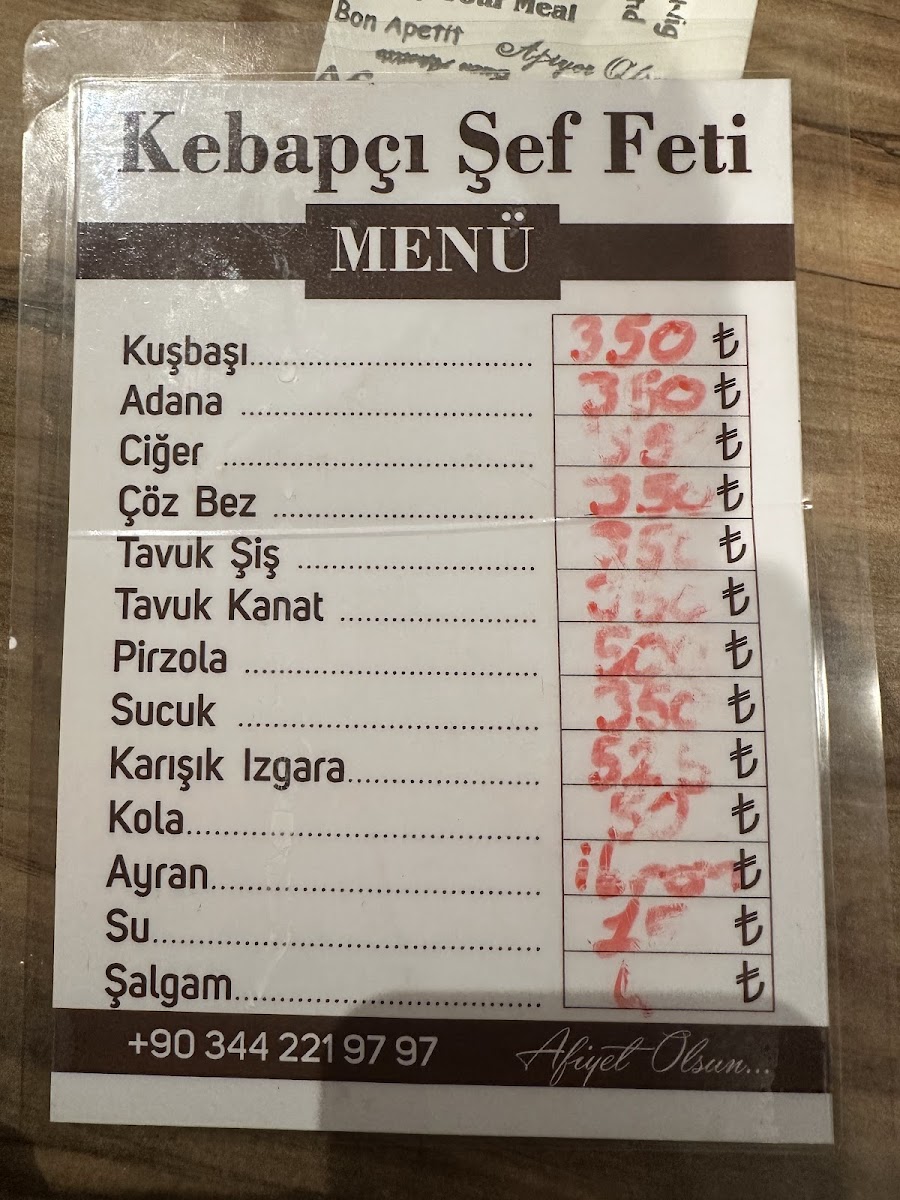 Meal
Bon Apetit
Kebapçı Şef Feti
MENÜ
Kuşbaşı.................................... 350 ₺
Adana .................................... 350 ₺
Ciğer .................................... ₺
Çöz Bez .................................... 350 ₺
Tavuk Şiş .................................... 350 ₺
Tavuk Kanat .................................... 350 ₺
Pirzola .................................... ₺
Sucuk .................................... 350 ₺
Karışık Izgara.................................... 525 ₺
Kola.................................... 50 ₺
Ayran.................................... ikram ₺
Su.................................... ₺
Şalgam.................................... ₺
+90 344 221 97 97 Afiyet Olsun...